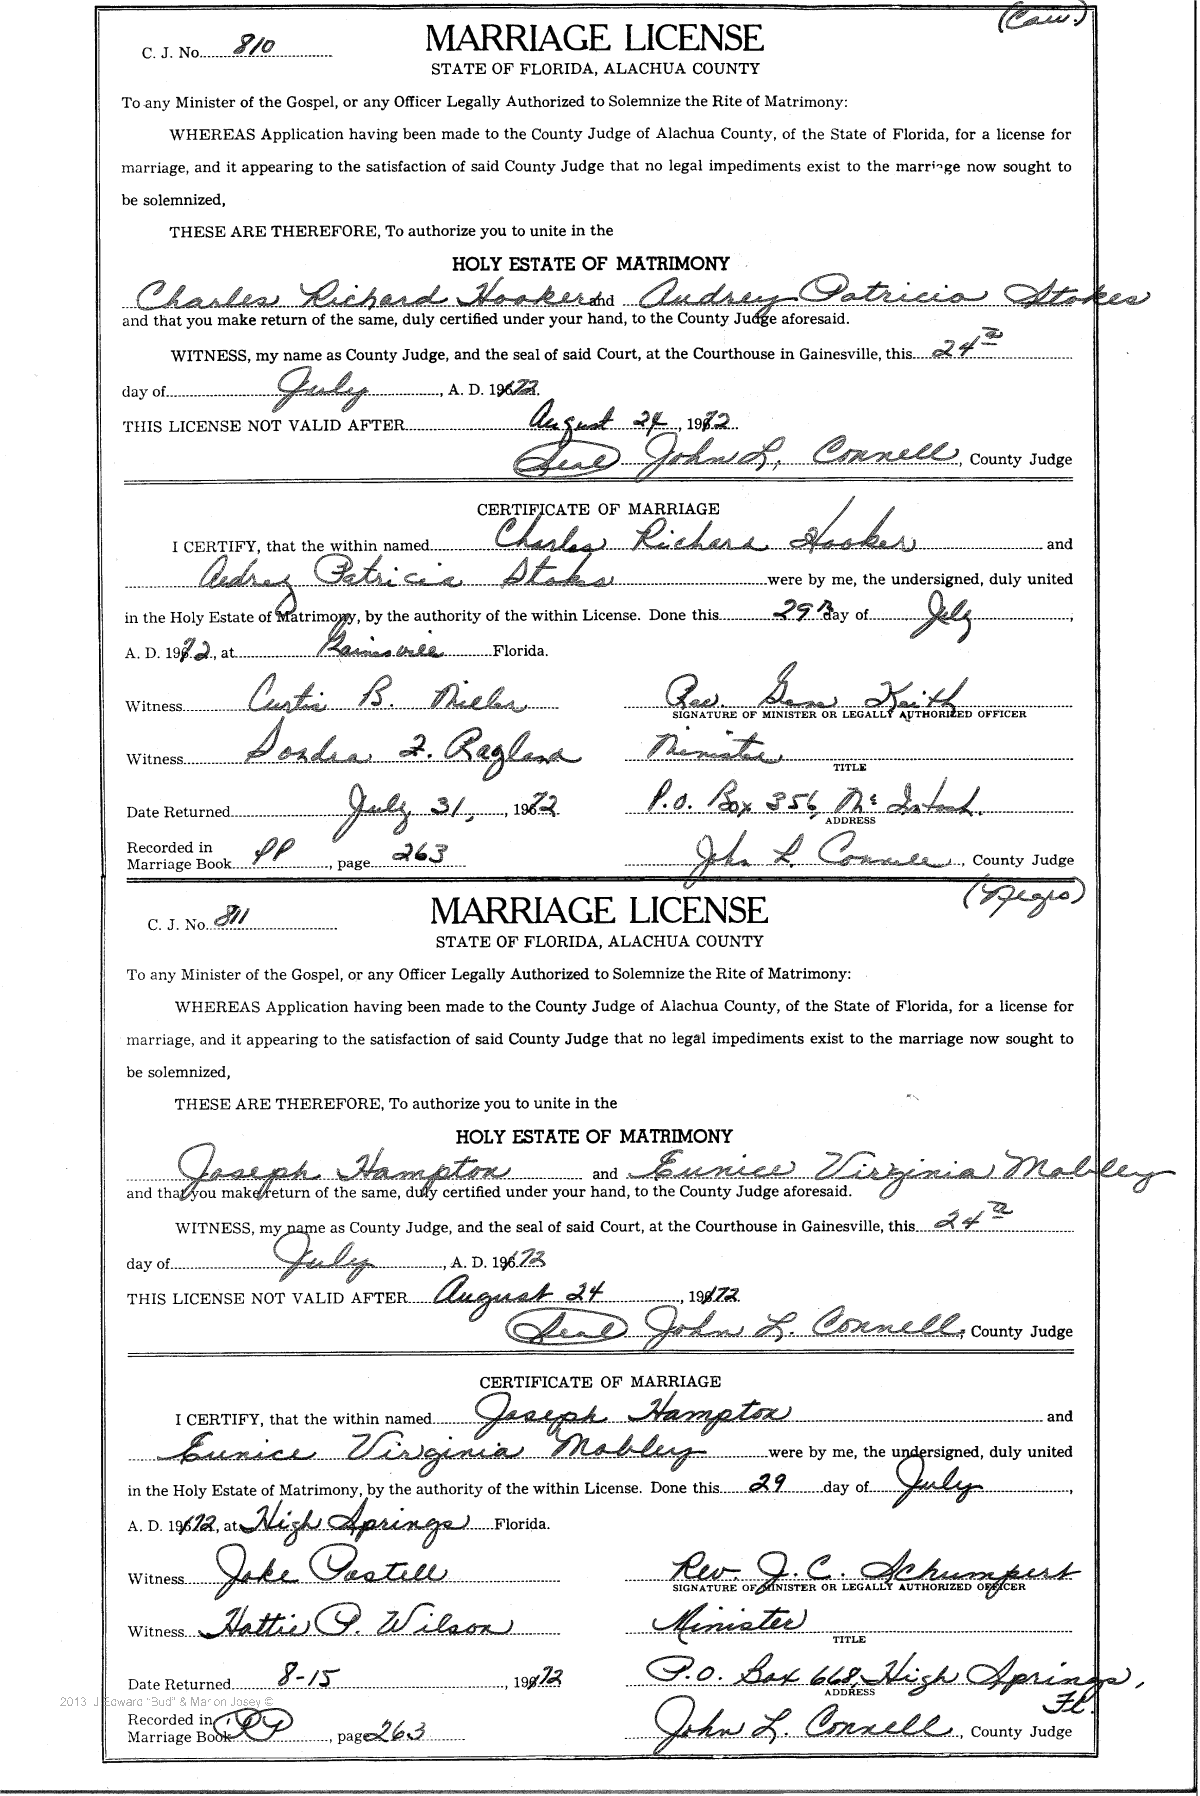 (Cau.)
C. J. No. 810
MARRIAGE LICENSE
STATE OF FLORIDA, ALACHUA COUNTY
To any Minister of the Gospel, or any Officer Legally Authorized to Solemnize the Rite of Matrimony:
WHEREAS Application having been made to the County Judge of Alachua County, of the State of Florida, for a license for
marriage, and it appearing to the satisfaction of said County Judge that no legal impediments exist to the marriage now sought to
be solemnized,
THESE ARE THEREFORE, To authorize you to unite in the
HOLY ESTATE OF MATRIMONY
Charles Richard Hooker and Audrey Patricia Stokes
and that you make return of the same, duly certified under your hand, to the County Judge aforesaid.
WITNESS, my name as County Judge, and the seal of said Court, at the Courthouse in Gainesville, this 24th
day of July, A. D. 1972.
THIS LICENSE NOT VALID AFTER August 24, 1972.
Seal John L. Connell, County Judge
CERTIFICATE OF MARRIAGE
I CERTIFY, that the within named Charles Richard Hooker and
Audrey Patricia Stoks were by me, the undersigned, duly united
in the Holy Estate of Matrimony, by the authority of the within License. Done this 29th day of July,
A. D. 1972, at Gainsville Florida.
Witness Curtis B. Miller Rev. Gene Keith
SIGNATURE OF MINISTER OR LEGALLY AUTHORIZED OFFICER
Witness Sondra F. Ragland Minister
TITLE
Date Returned July 31, 1972 P.O. Box 356 McIntosh.
ADDRESS
Recorded in
Marriage Book PP, page 263 John L. Connell, County Judge
(Negro)
C. J. No. 811
MARRIAGE LICENSE
STATE OF FLORIDA, ALACHUA COUNTY
To any Minister of the Gospel, or any Officer Legally Authorized to Solemnize the Rite of Matrimony:
WHEREAS Application having been made to the County Judge of Alachua County, of the State of Florida, for a license for
marriage, and it appearing to the satisfaction of said County Judge that no legal impediments exist to the marriage now sought to
be solemnized,
THESE ARE THEREFORE, To authorize you to unite in the
HOLY ESTATE OF MATRIMONY
Joseph Hampton and Eunice Virginia Mobley
and that you make return of the same, duly certified under your hand, to the County Judge aforesaid.
WITNESS, my name as County Judge, and the seal of said Court, at the Courthouse in Gainesville, this 24th
day of July, A. D. 1972
THIS LICENSE NOT VALID AFTER August 24, 1972.
Seal John L. Connell, County Judge
CERTIFICATE OF MARRIAGE
I CERTIFY, that the within named Joseph Hampton and
Eunice Virginia Mobley were by me, the undersigned, duly united
in the Holy Estate of Matrimony, by the authority of the within License. Done this 29 day of July,
A. D. 1972, at High Springs Florida.
Witness Jake Postell Rev. J. C. Schumpert
SIGNATURE OF MINISTER OR LEGALLY AUTHORIZED OFFICER
Witness Hattie P. Wilson Minister
TITLE
Date Returned 8-15, 1972 P.O. Box 668, High Springs, Fl.
ADDRESS
2013 J Edward "Bud" & Marion Josey ©
Recorded in
Marriage Book PP, page 263 John L. Connell, County Judge